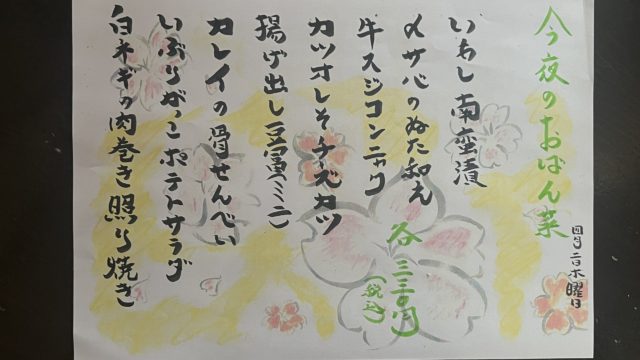 今夜のおばん菜
四月二日木曜日
いわし南蛮漬
〆サバのぬた和え
牛スジコンニャク
カツオしそチーズカツ
揚げ出し豆富(ミニ)
カレイの骨せんべい
いぶりがっこポテトサラダ
白ネギの肉巻き照り焼き
各三三〇円
(税込)